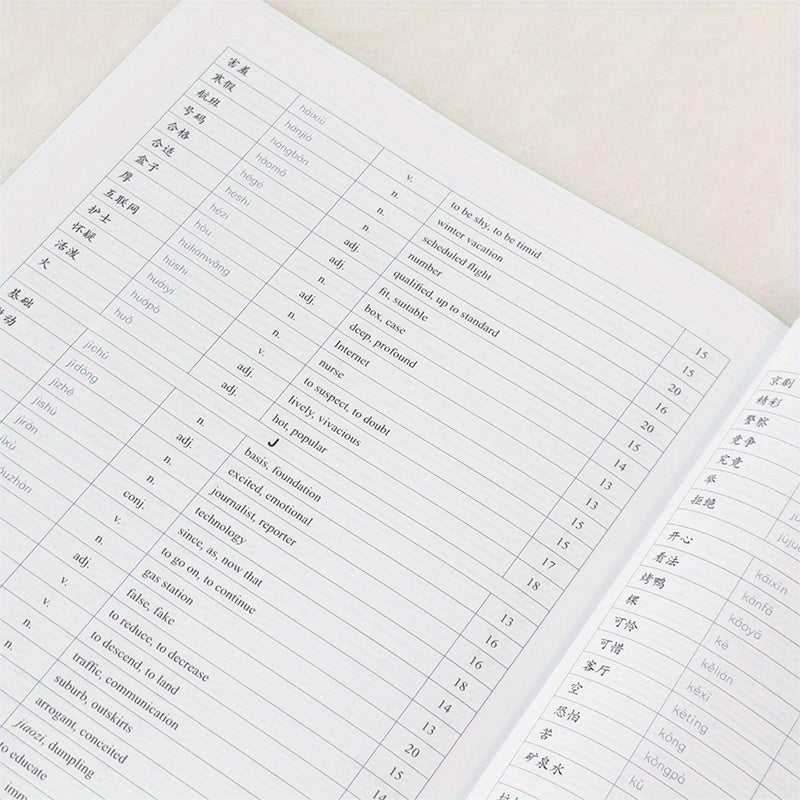 害羞 hàixiū v. to be shy, to be timid 15
寒假 hánjià n. winter vacation 15
航班 hángbān n. scheduled flight 20
号码 hàomǎ n. number 16
合格 hégé adj. qualified, up to standard 20
合适 héshì adj. fit, suitable 15
盒子 hézi n. box, case 14
厚 hòu adj. deep, profound 13
互联网 hùliánwǎng n. Internet 13
护士 hùshi n. nurse 15
怀疑 huáiyí v. to suspect, to doubt 15
活泼 huópō adj. lively, vivacious 17
火 huǒ adj. hot, popular 18
J
基础 jīchǔ n. basis, foundation 13
动 jīdòng adj. excited, emotional 16
jìzhě n. journalist, reporter 16
jìshù n. technology 18
jìrán conj. since, as, now that 14
ìxù v. to go on, to continue 13
óuzhàn n. gas station 20
adj. false, fake 15
v. to reduce, to decrease 14
v. to descend, to land
n. traffic, communication
n. suburb, outskirts
arrogant, conceited
jiaozi, dumpling
to educate
京剧
精彩
警察
竞争
究竟
举
拒绝 jùjué
开心 kāixīn
看法 kànfǎ
烤鸭 kǎoyā
棵 kē
可怜 kělián
可惜 kěxī
客厅 kètīng
空 kōng
恐怕 kǒngpà
苦 kǔ
矿泉水